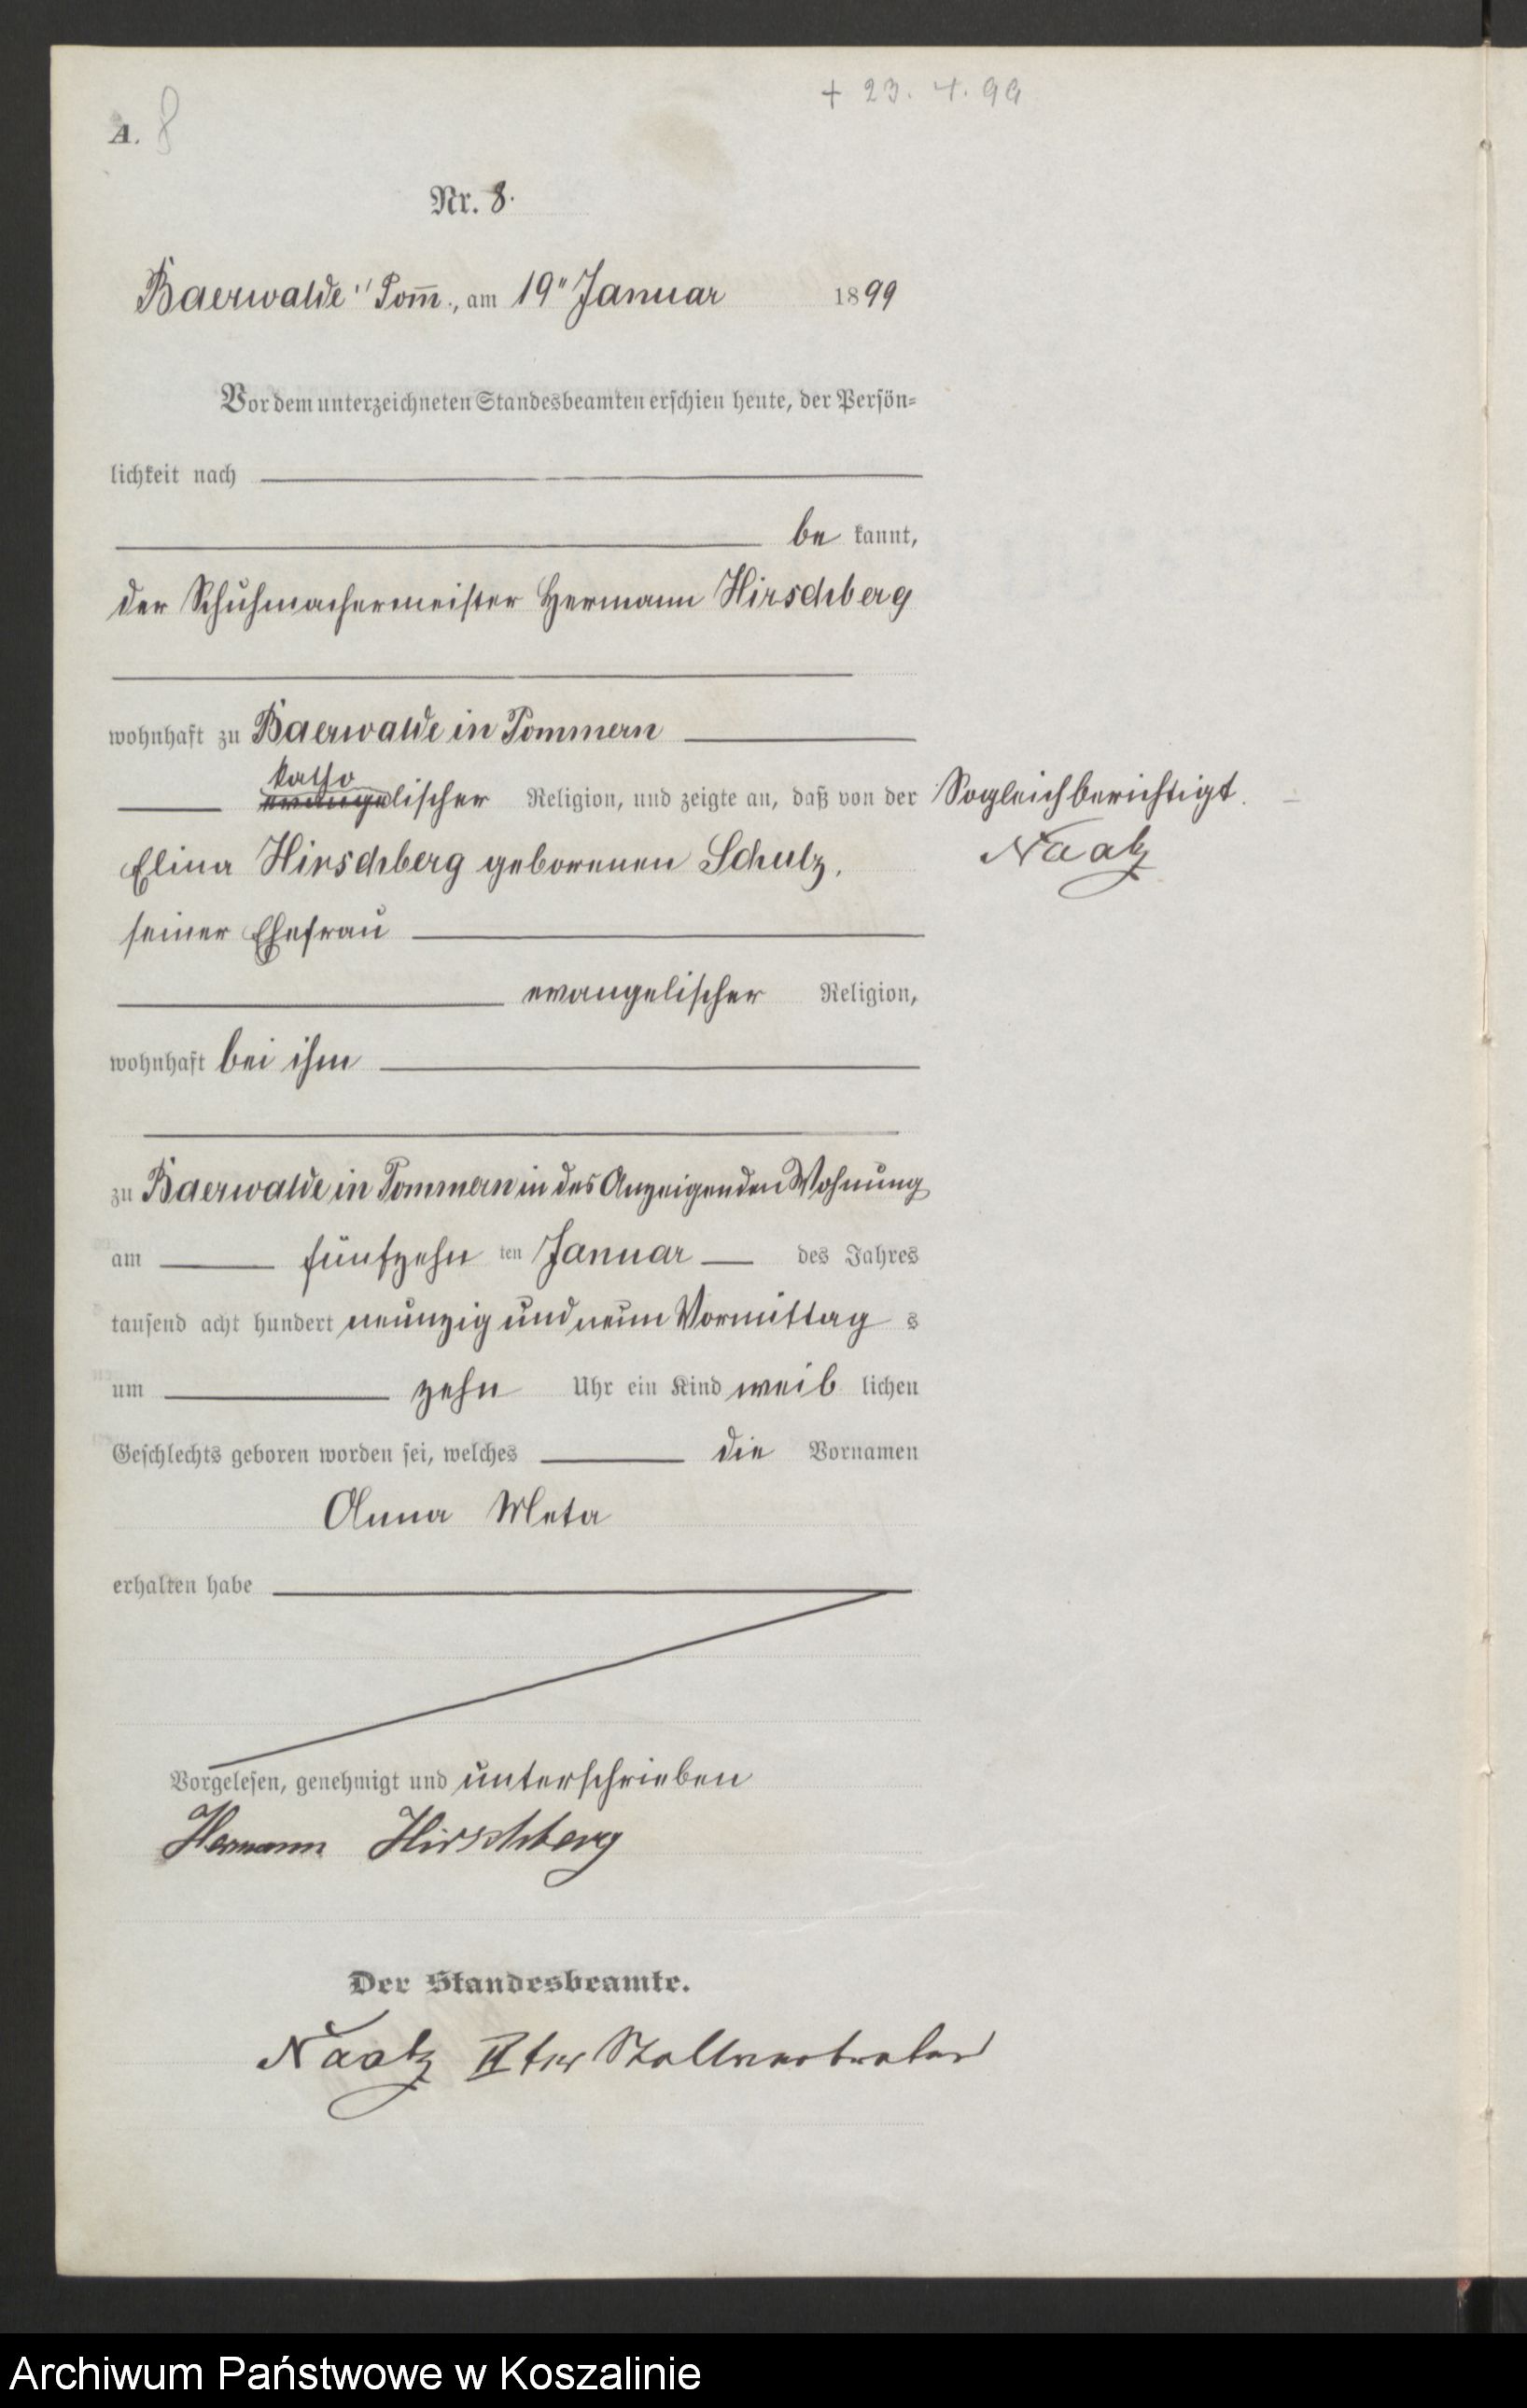 + 23. 4. 99
A. 8
Nr. 8.
Baerwalde i/ Pom̅., am 19" Januar 1899
Vor dem unterzeichneten Standesbeamten erschien heute, der Persön=
lichkeit nach
be kannt,
der Schuhmachermeister Hermann Hirschberg
wohnhaft zu Baerwalde in Pommern
katho
evangelischer Religion, und zeigte an, daß von der Sogleich berichtigt.
Elina Hirschberg geborenen Schulz, Naatz
seiner Ehefrau
evangelischer Religion,
wohnhaft bei ihm
zu Baerwalde in Pommern in des Anzeigenden Wohnung
am fünfzehn ten Januar des Jahres
tausend acht hundert neunzig und neun Vormittag s
um zehn Uhr ein Kind weib lichen
Geschlechts geboren worden sei, welches die Vornamen
Anna Meta
erhalten habe
Vorgelesen, genehmigt und unterschrieben
Hermann Hirschberg
Der Standesbeamte.
Naatz II ter Stellvertreter
Archiwum Państwowe w Koszalinie